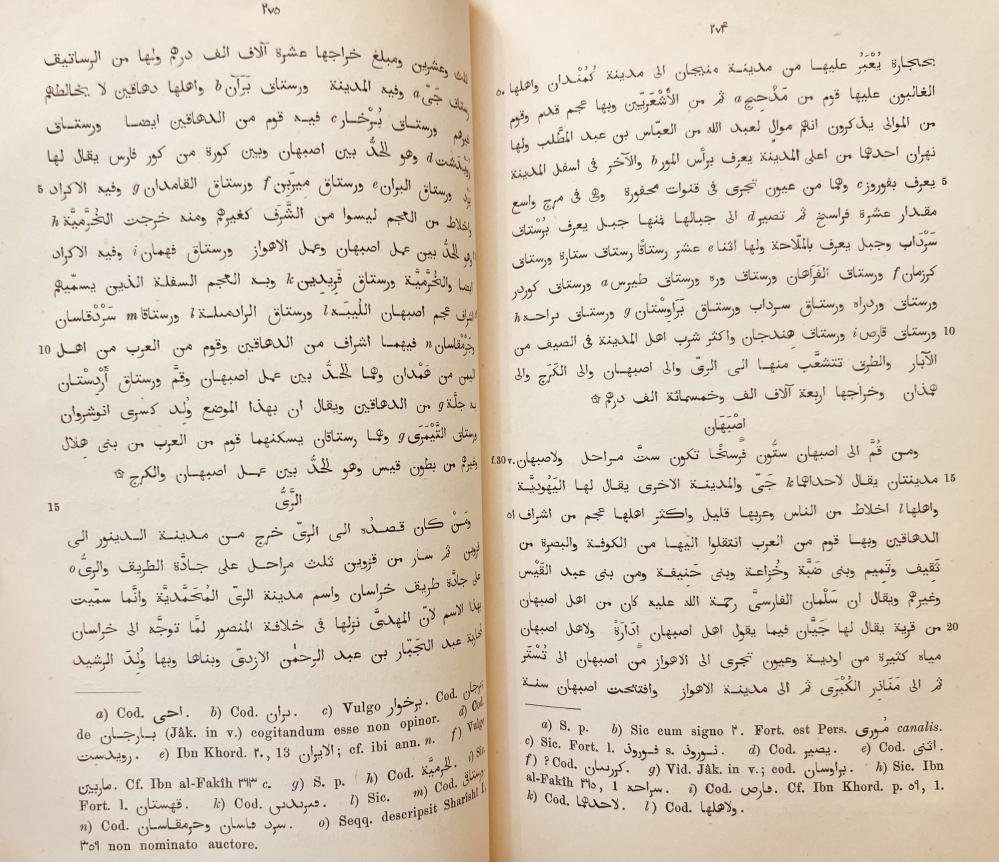 ٢٧٤
بحجارة يُعْبَرُ عليها من مدينة منيجان الى مدينة كُمُنْدان واهلها
الغالبون عليها قوم من مَذْحج a ثم من الأَشْعَريّين وبها عجم قدم وقوم
من الموالى يذكرون انهم موالٍ لعبد الله من العبّاس بن عبد المطّلب ولها
نهران احدهما من اعلى المدينة يعرف برأس المور b والآخر فى اسفل المدينة
5 يعرف بفوروز c وهما من عيون تجرى فى قنوات محفورة وهى فى مرج واسع
مقدار عشرة فراسخ ثم تصير d الى جبالها فمنها جبل يعرف بُرسْتاق
سَرْداب وجبل يعرف بالملّاحة ولها اثنا e عشر رستاقًا رستاق ستارة ورستاق
كرزمان f ورستاق الفَرَاهان ورستاق وره ورستاق طيرس a ورستاق كوردر
ورستاق وردراه ورستاق سرداب ورستاق بَرَاوِسْتان g ورستاق براحه h
10 ورستاق قارص i ورستاق هِندجان واكثر شرب اهل المدينة فى الصيف من
الآبار والطرق تتشعَّب منها الى الرىّ والى اصبهان والى الكَرَج والى
همذان وخراجها اربعة آلاف الف وخمسمائة الف درهم ۞
اصْبَهَان
f.30 v. ومن قُمَّ الى اصبهان ستُّون فَرْسَخًا تكون ستَّ مراحل ولاصبهان
15 مدينتان يقال لاحداهما k جَىّ والمدينة الاخرى يقال لها اليَهُوديَّة
واهلها l اخلاط من الناس وعربها قليل واكثر اهلها عجم من اشراف
الدهاقين وبها قوم من العرب انتقلوا اليها من الكوفة والبصرة من
ثَقِيف وتَميم وبنى ضَبَّة وخُزاعة وبنى حَنِيفة ومن بنى عبد القَيْس
وغيرهم ويقال ان سَلْمان الفارسىَّ رحمة الله عليه كان من اهل اصبهان
20 من قرية يقال لها جَيَّان فيما يقول اهل اصبهان ادَارَةً ولاهل اصبهان
مياه كثيرة من اودية وعيون تجرى الى الاهواز من اصبهان الى تُسْتَر
ثم الى مَنَاذِر الكُبْرَى ثم الى مدينة الاهواز وافتتحت اصبهان سنة
a) S. p. b) Sic cum signo ٢. Fort. est Pers. مُورى canalis.
c) Sic. Fort. l. فوروذ s. نوروذ. d) Cod. يصير. e) Cod. اثنى.
f) ? Cod. كرىىان. g) Vid. Jâk. in v.; cod. براوسان. h) Sic. Ibn
al-Fakîh ٢٦٥, 1 سراحه. i) Cod. فارص. Cf. Ibn Khord. p. ٥٩, 1.
k) Cod. لاحدها. l) Cod. ولاهلها.
٢٧٥
ثلث وعشرين ومبلغ خراجها عشرة آلاف الف درهم ولها من الرساتيق
رستاق جَىّ a وفيه المدينة ورستاق بَرَآن b واهلها دهاقين لا يخالطهم
غيرهم ورستاق بُرْخار c فيه قوم من الدهاقين ايضا ورستاق
d وهو الحدُّ بين اصبهان وبين كورة من كور فارس يقال لها
5 ورستاق البران e ورستاق ميرَبين f ورستاق القامدان g وفيه الاكراد
واخلاط من العجم ليسوا من الشَّرَف كغيرهم ومنه خرجت الخُرَّميَّة h
وهو الحدُّ بين عمل اصبهان وعمل الاهواز ورستاق فهمان i وفيه الاكراد
ايضا والخُرَّميَّة ورستاق فَريدين k وبه العجم السفلة الذين يسمّيهم
اشراف عجم اصبهان اللّيبَة l ورستاق الرادميلة l ورستاقا m سَرْدْقاسان
10 وجَرْمْقاسان n فيهما اشراف من الدهاقين وقوم من العرب من اهل
اليمن من هَمْدان وهما الحدُّ بين عمل اصبهان وقُمَّ ورستاق أَرْدِسْتان
به جلَّة g من الدهاقين ويقال ان بهذا الموضع وُلِد كسرى انوشروان
ورستاق التَّيْمَرَى g وهما رستاقان يسكنهما قوم من العرب من بنى هِلال
وغيرهم من بطون قيس وهو الحدُّ بين عمل اصبهان والكرج ۞
15 الرَّىُّ
ومَنْ كان قصدُه الى الرىّ خرج من مدينة الدينور الى
قزوين ثم سار من قزوين ثلث مراحل على جادَّة الطريق والرىُّ o
على جادَّة طريق خراسان واسم مدينة الرىّ المُحَمَّديَّة وانَّما سمّيت
بهذا الاسم لانّ المهدىَّ نزلها فى خلافة المنصور لمَّا توجَّه الى خراسان
لمحاربة عبد الجَبّار بن عبد الرحمٰن الازدىّ وبناها وبها وُلِدَ الرشيد
a) Cod. احى. b) Cod. ىران. c) Vulgo برخوار. Cod.
de بارجان (Jâk. in v.) cogitandum esse non opinor. d) Cod.
رويدست. e) Ibn Khord. ٢٠, 13 الايران; cf. ibi ann. n. f) Vulgo
ماربين. Cf. Ibn al-Fakîh ٢٦٣ c. g) S. p. h) Cod. الحرميَّة. i) Sic.
Fort. l. قهستان. k) Cod. l) Sic. m) Cod. ورستاق.
n) Cod. سرد قاسان وحرمقاسان. o) Seqq. descripsit Sharîshî I,
٣٥٩ non nominato auctore.